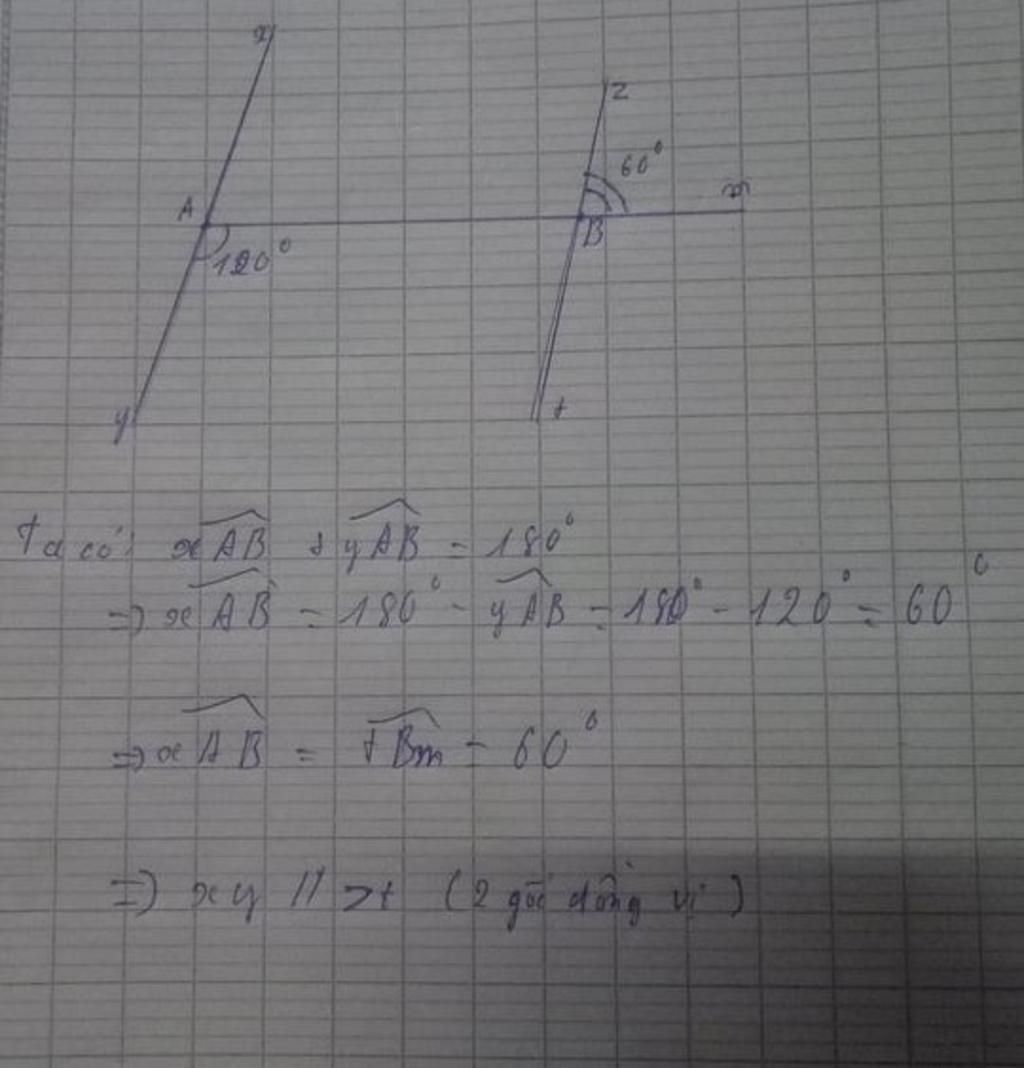 x
z
60°
A
m
B
120°
y
t
Ta có: xAB + yAB = 180°
=> xAB = 180° - yAB = 180° - 120° = 60°
=> xAB = tBm = 60°
=> xy // zt (2 góc đồng vị)